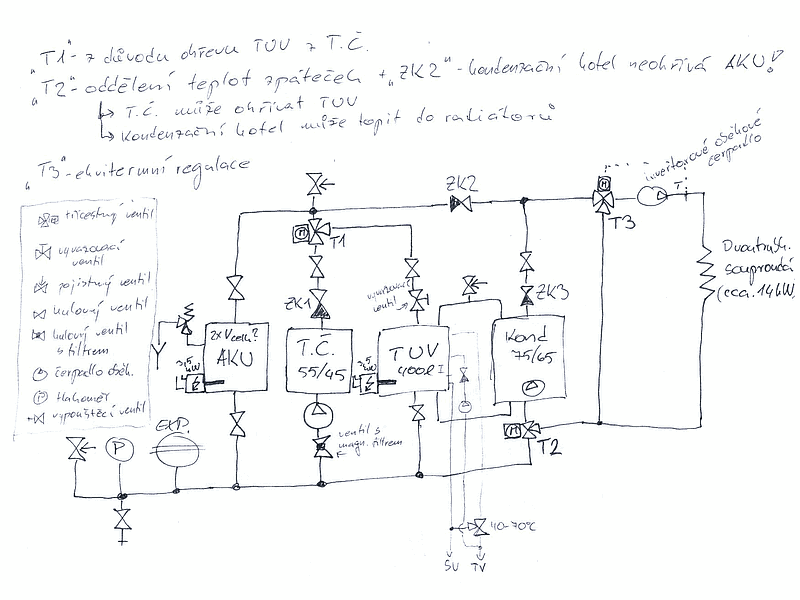 "T1" - z důvodu ohřevu TUV z T.Č.
"T2" - oddělení teplot zpáteček + "ZK2" - kondenzační kotel neohřívá AKU!
↳ T.Č. může ohřívat TUV
↳ kondenzační kotel může topit do radiátorů
"T3" - ekvitermní regulace
invertorové oběhové
čerpadlo
ZK2
T
T3
M
třícestný ventil
vyvažovací
ventil
pojistný ventil
kulový ventil
kulový ventil
s filtrem
čerpadlo oběh.
P tlakoměr
vypouštěcí ventil
M
T1
Dvoutrubk.
souproudá
(cca. 14kW)
ZK1
vyvažovací
ventil
ZK3
2x Vcelk?
AKU
T.Č.
55/45
TUV
400l
Kond
75/65
3,5
kW
3,5
kW
EXP.
P
ventil s
magn. filtrem
M
T2
40-70°C
SV
TV